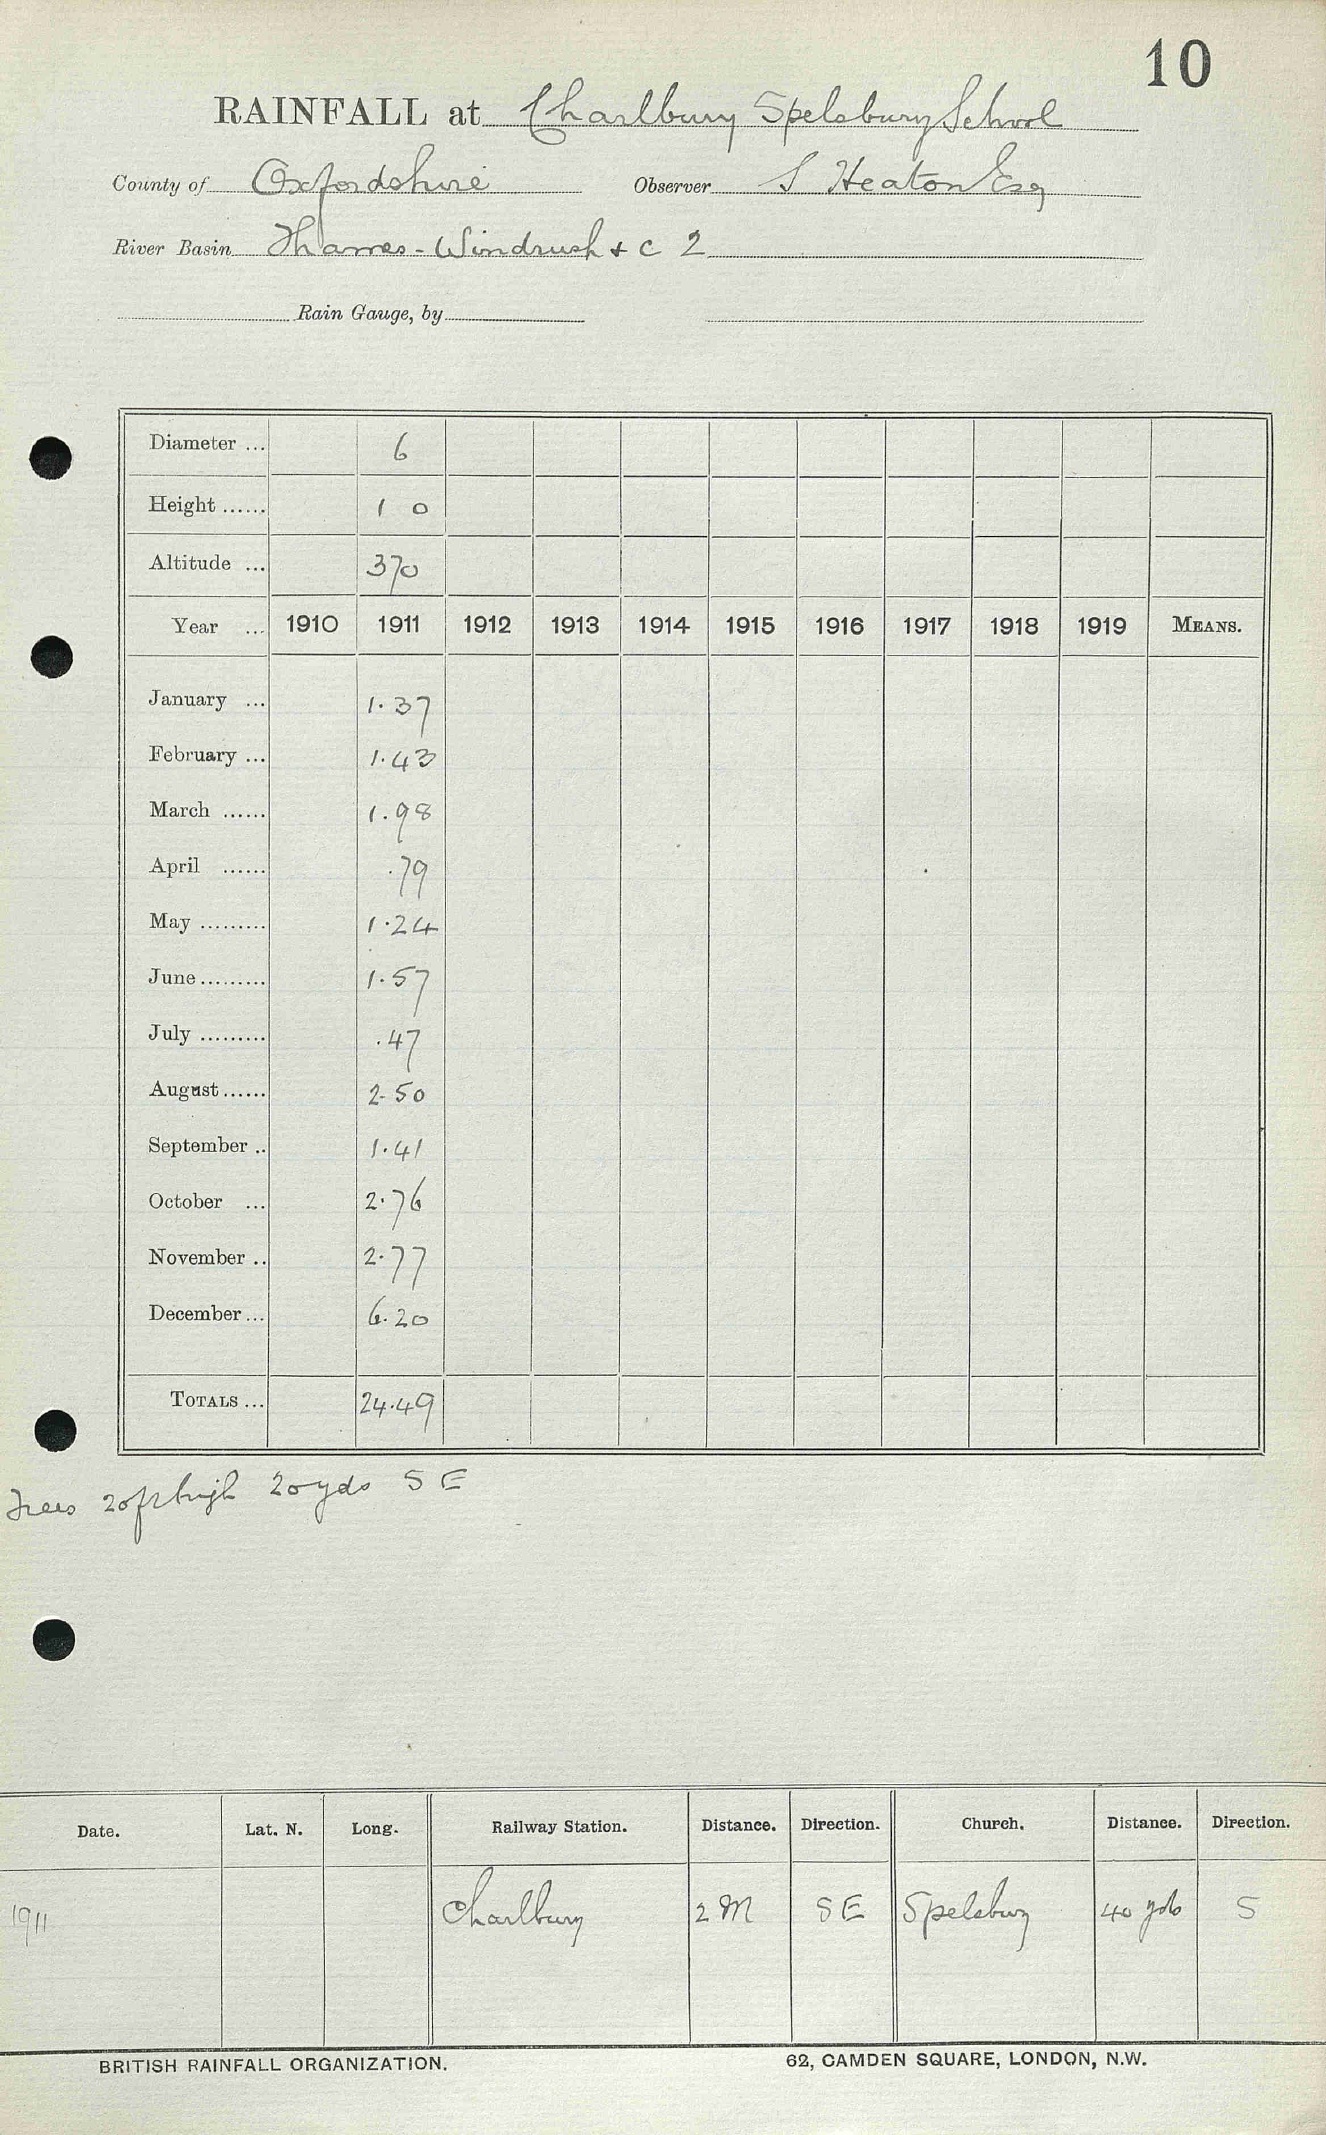 10
RAINFALL at Charlbury Spelsbury School
County of Oxfordshire Observer S Heaton Esq
River Basin Thames - Windrush + c 2
Rain Gauge, by
Diameter ... 6
Height ...... 1 0
Altitude ... 370
Year ... 1910 1911 1912 1913 1914 1915 1916 1917 1918 1919 MEANS.
January ... 1.37
February ... 1.43
March ...... 1.98
April ...... .79
May ......... 1.24
June ......... 1.57
July ......... .47
August ...... 2.50
September .. 1.41
October ... 2.76
November .. 2.77
December ... 6.20
TOTALS ... 24.49
Trees 20ft high 20 yds S E
Date. Lat. N. Long. Railway Station. Distance. Direction. Church. Distance. Direction.
1911 Charlbury 2 M S E Spelsbury 40 yds S
BRITISH RAINFALL ORGANIZATION. 62, CAMDEN SQUARE, LONDON, N.W.